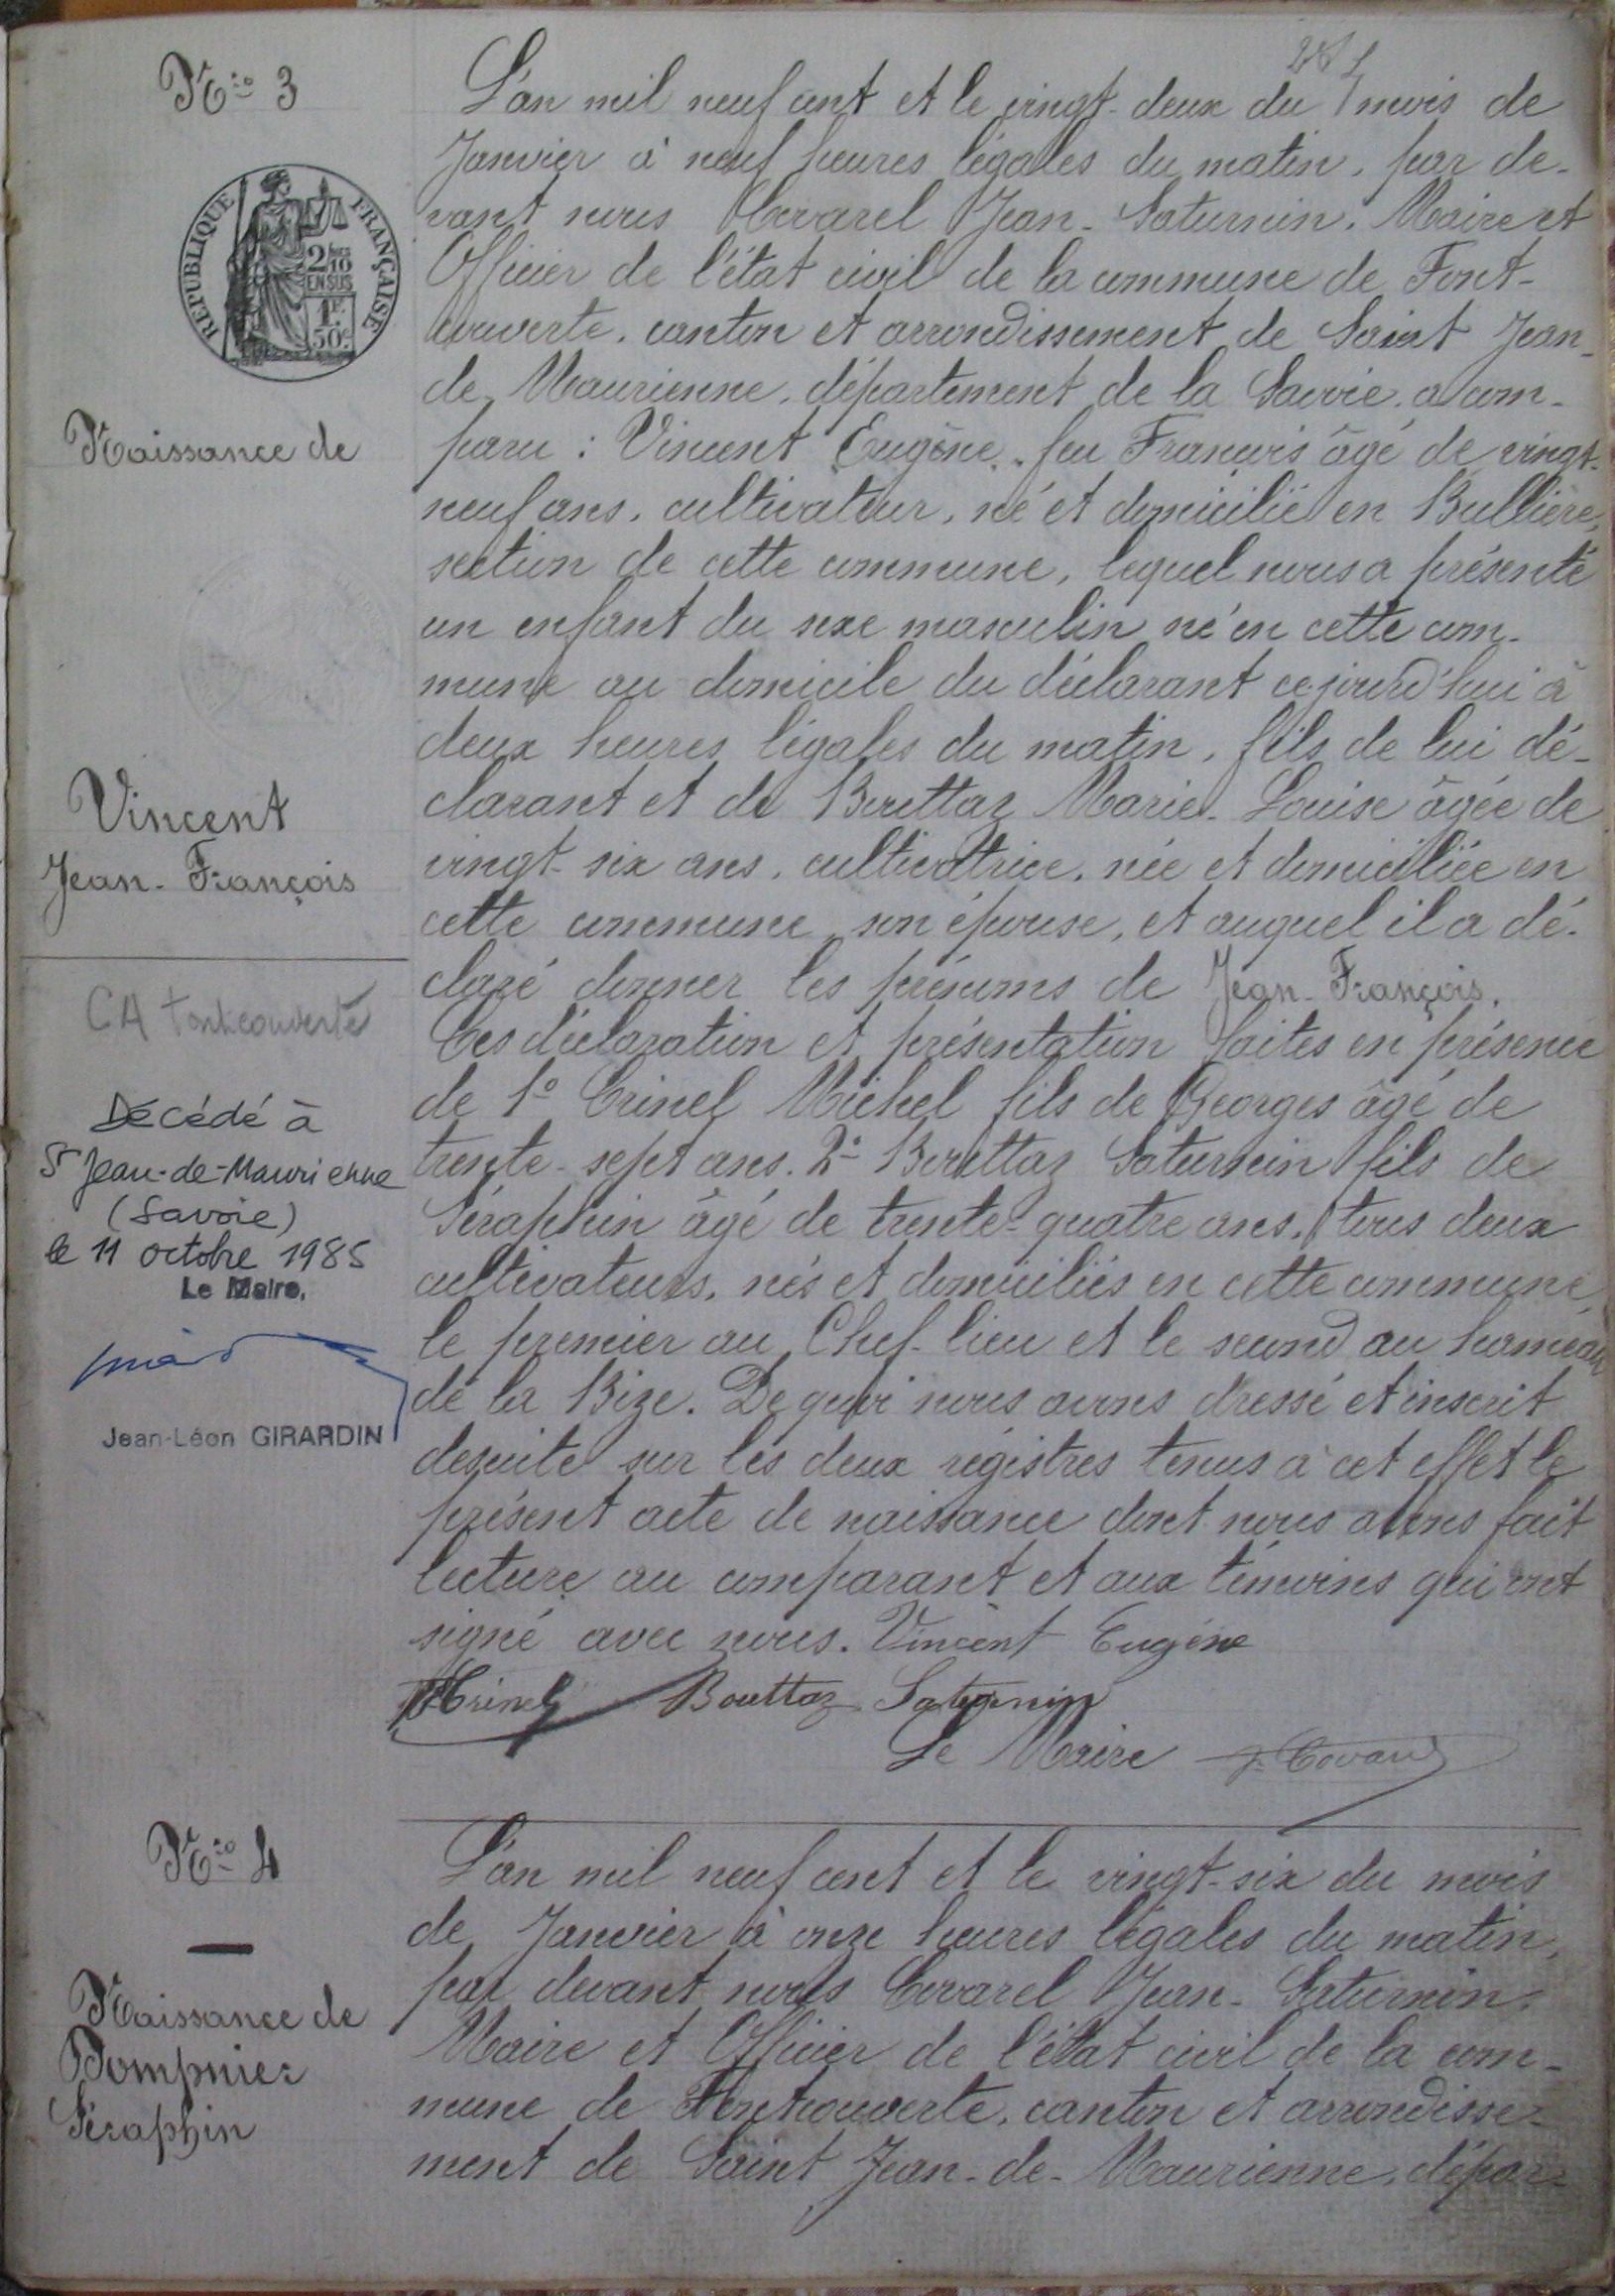 Nro 3
RÉPUBLIQUE FRANÇAISE
2/10
EN SUS
1F.
50c.
Naissance de
Vincent
Jean-François
CA Fontcouverte
Décédé à
St Jean-de-Maurienne
(Savoie)
le 11 octobre 1985
Le Maire,
Jean-Léon GIRARDIN
L'an mil neuf cent et le vingt-deux du mois de
Janvier à neuf heures légales du matin, par de-
vant nous Covarel Jean-Saturnin, Maire et
Officier de l'état civil de la commune de Font-
couverte, canton et arrondissement de Saint Jean-
de Maurienne, département de la Savoie, a com-
paru : Vincent Eugène, feu François âgé de vingt-
neuf ans, cultivateur, né et domicilié en Bullière,
section de cette commune, lequel nous a présenté
un enfant du sexe masculin né en cette com-
mune au domicile du déclarant cejourd'hui à
deux heures légales du matin, fils de lui dé-
clarant et de Bouttaz Marie-Louise âgée de
vingt-six ans, cultivatrice, née et domiciliée en
cette commune, son épouse, et auquel il a dé-
claré donner les prénoms de Jean-François.
Ces déclaration et présentation faites en présence
de 1° Crinel Michel fils de Georges âgé de
trente-sept ans. 2° Bouttaz Saturnin fils de
Séraphin âgé de trente-quatre ans, tous deux
cultivateurs, nés et domiciliés en cette commune,
le premier au Chef-lieu et le second au hameau
de la Bize. De quoi nous avons dressé et inscrit
desuite sur les deux régistres tenus à cet effet le
présent acte de naissance dont nous avons fait
lecture au comparant et aux témoins qui ont
signé avec nous. Vincent Eugène
Crinel Bouttaz Saturnin
Le Maire J. Covarel
Nro 4
Naissance de
Pompnier
Séraphin
L'an mil neuf cent et le vingt-six du mois
de Janvier à onze heures légales du matin,
par devant nous Covarel Jean-Saturnin,
Maire et Officier de l'état civil de la com-
mune de Fontcouverte, canton et arrondisse-
ment de Saint Jean-de-Maurienne, dépar-